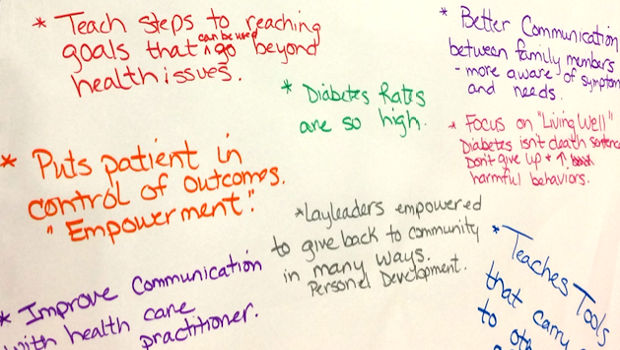 * Teach steps to reaching
goals that can be used ^ go beyond
health issues.
* Better Communication
between family members
- more aware of symptom
and needs.
* Diabetes Rates
are so high.
* Focus on "Living Well"
Diabetes isn't death sentence
Don't give up + ↑
harmful behaviors.
* Puts patient in
control of outcomes.
"Empowerment".
* Layleaders empowered
to give back to community
in many ways.
Personel Development.
* Improve Communication
with health care
practitioner.
* Teaches Tools
that carry
to oth